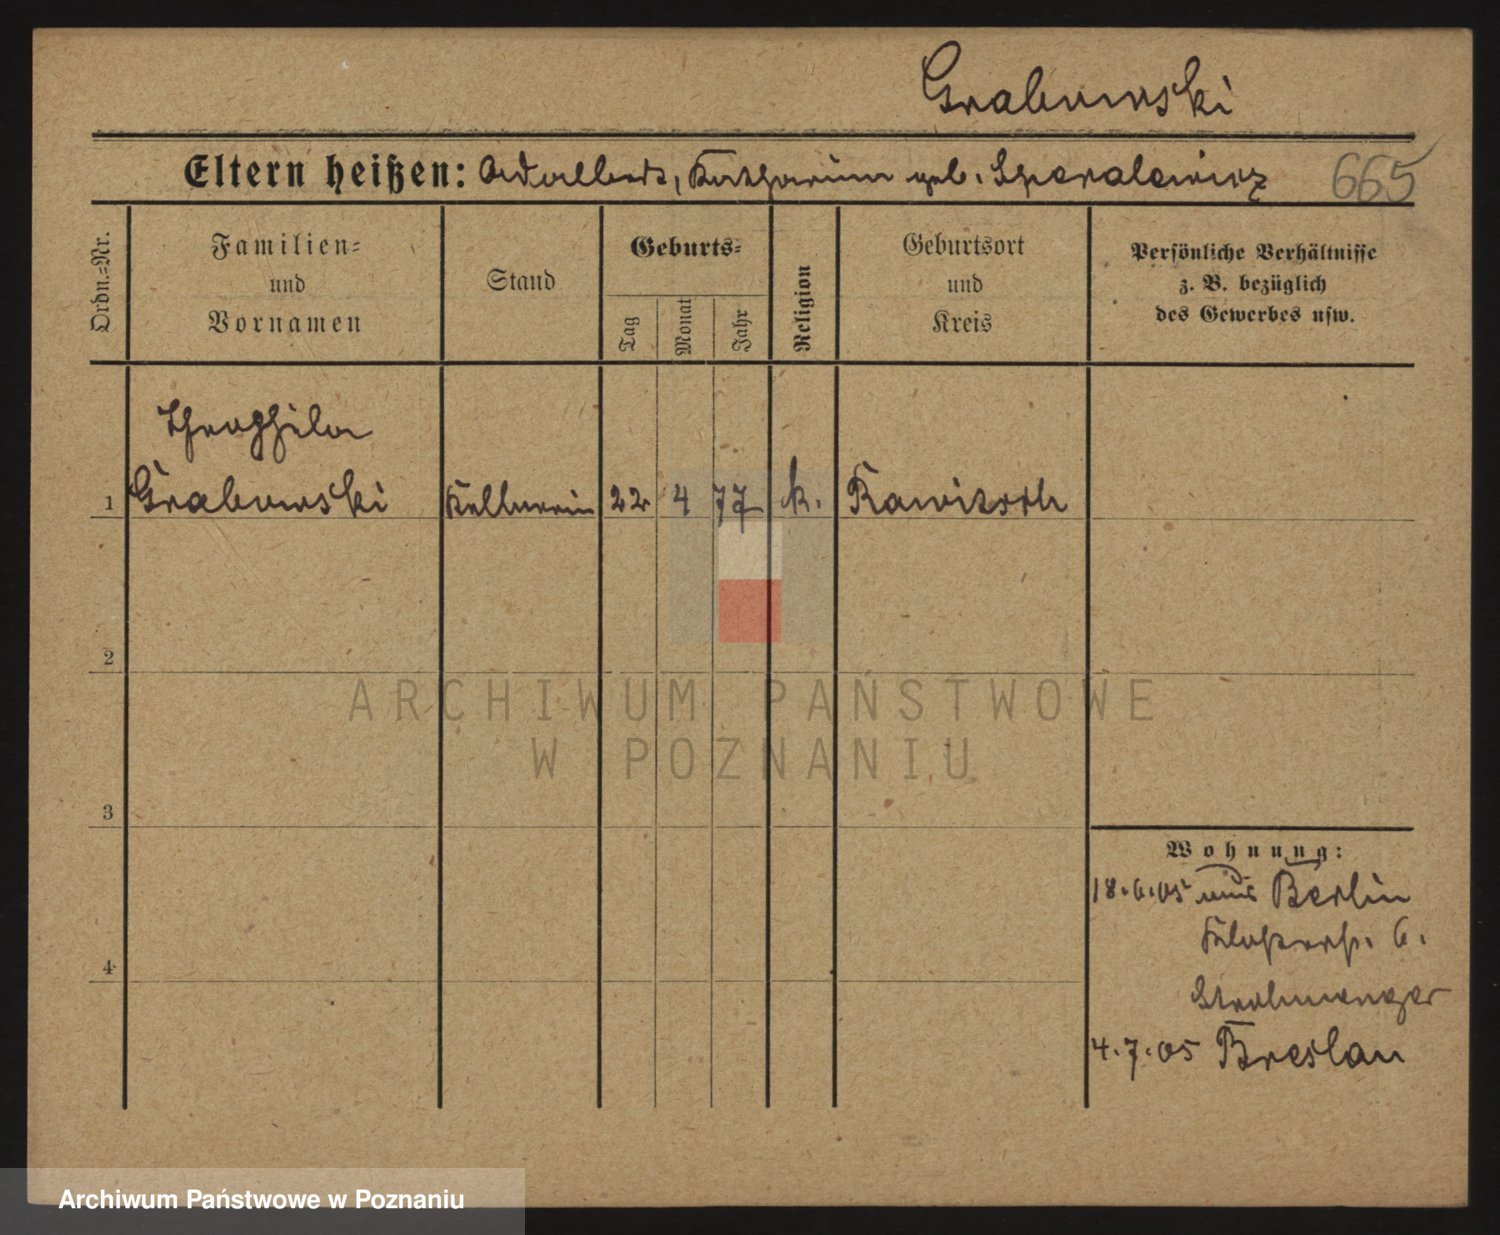 Grabowski
Eltern heißen: Adalbert, Katharina geb. 665
Ordn.-Nr.
Familien-
und
Vornamen
Stand
Geburts-
Tag
Monat
Jahr
Religion
Geburtsort
und
Kreis
Persönliche Verhältnisse
z. B. bezüglich
des Gewerbes usw.
Theophila
1 Grabowski Kellnerin 22 4 77 k. Rawitsch
2
3
4
Wohnung:
18.6.05 aus Berlin
6.
4.7.05 Breslau
ARCHIWUM PAŃSTWOWE
W POZNANIU
Archiwum Państwowe w Poznaniu